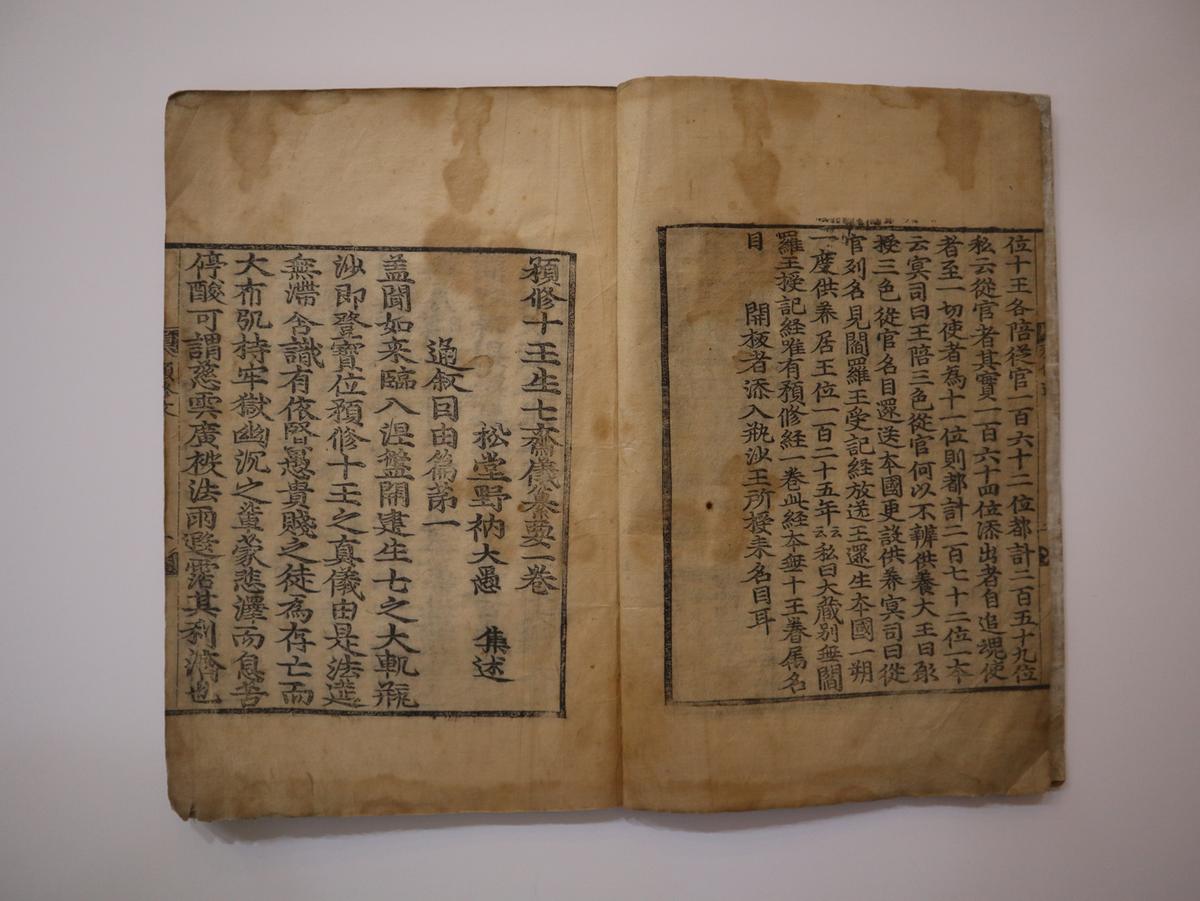 位十王各陪從官一百六十二位都計二百五十九位
私云從官者其實一百六十四位添出者自追魂使
者至一切使者為十一位則都計二百七十二位一本
云冥司曰王陪三色從官何以不辨供養大王曰承
授三色從官名目還送本國更設供養冥司曰從
官列名見閻羅王受記經放送王還生本國一朔
一度供養居王位一百二十五年云云私曰大藏別無閻
羅王授記經雖有預修經一卷此經本無十王眷属名
目 開板者添入瓶沙王所授来名目耳
預修十王生七齋儀纂要一卷
松堂野衲大愚 集述
通叙因由篇第一
盖聞如来臨入涅槃開建生七之大軌瓶
沙即登寶位預修十王之真儀由是法筵
無滞含識有依賢愚貴賤之徒為存亡而
大布𠃔持牢獄幽沉之輩蒙悲澤而息苦
停酸可謂慈雲廣被法雨遐霑其利濟也